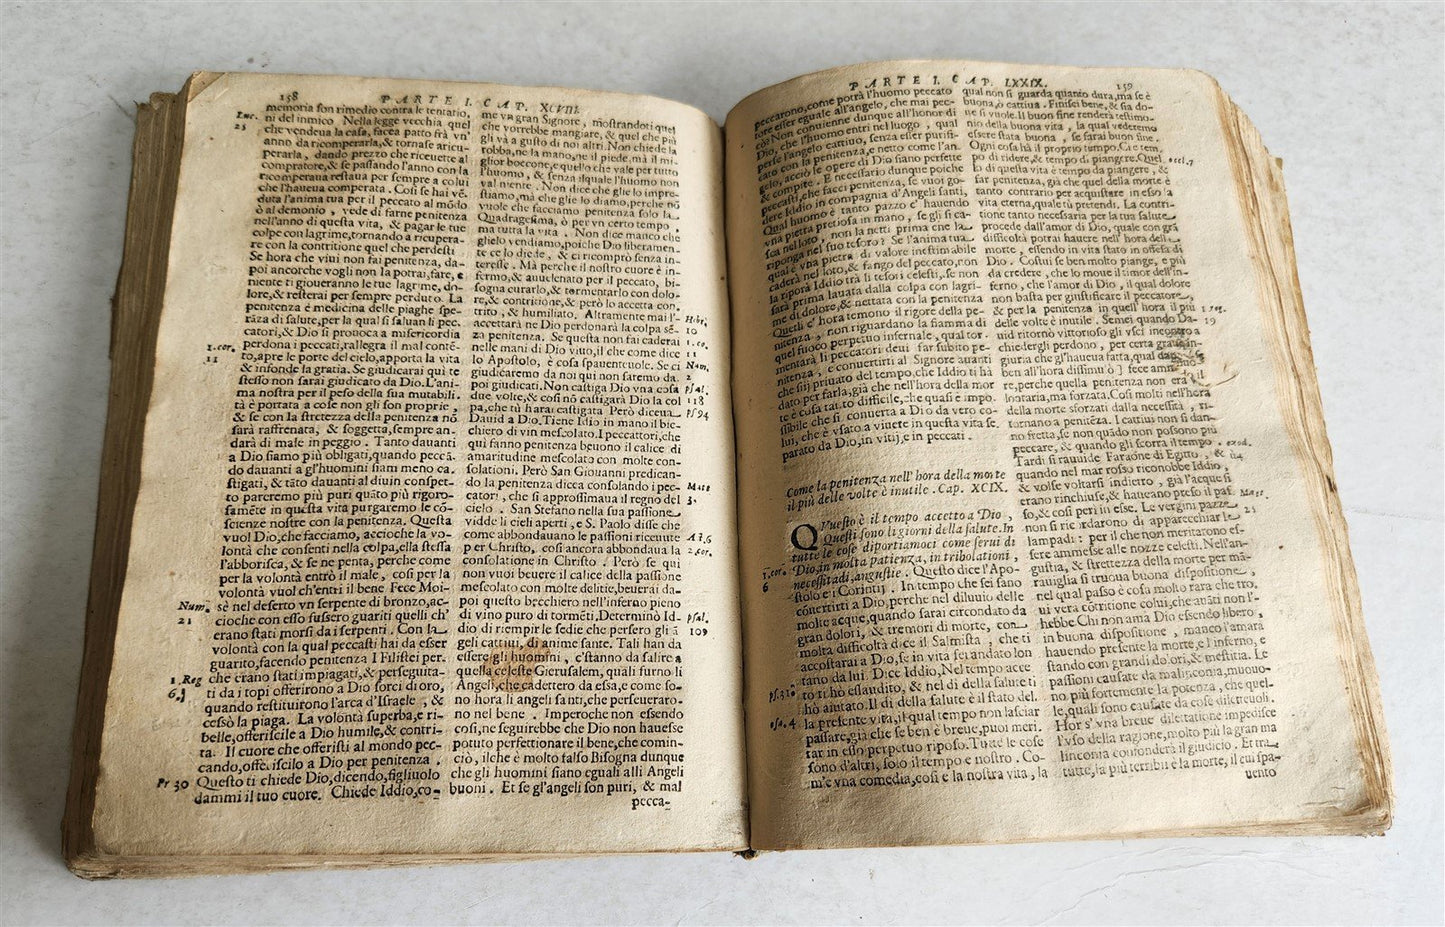 158
PARTE I. CAP. XCVIII.
memoria son rimedio contra le tentatio,
ni del inmico Nella legge vecchia quel
che vendeua la casa, facea patto frà vn'
anno da ricomperarla, & tornase aricu-
perarla, dando prezzo che riceuette al
compratore, & se passando l'anno con la
ricomperaua restaua per sempre a colui
che l'haueua comperata. Cosi se hai vẽ-
duta l'anima tua per il peccato al mõdo
ò al demonio, vede di farne penitenza
nell'anno di questa vita, & pagar le tue
colpe con lagrime, tornando a ricupera-
re con la contritione quel che perdesti
Se hora che viui non fai penitenza, da-
poi ancorche vogli non la potrai, fare, e
niente ti gioueranno le tue lagrime, do-
lore, & resterai per sempre perduto. La
penitenza è medicina delle piaghe spe-
rãza di salute, per la qual si saluan li pec.
catori, & Dio si prouoca a misericordia
perdona i peccati, rallegra il mal contẽ-
to, apre le porte del cielo, apporta la vita
& infonde la gratia. Se giudicarai qui te
stesso non sarai giudicato da Dio. L'ani-
ma nostra per il peso della sua mutabili.
tà è portata a cose non gli son proprie,
& se con la strettezza della penitenza nõ
sarà raffrenata, & soggetta, sempre an-
darà di male in peggio. Tanto dauanti
a Dio siamo più obligati, quanto peccã-
do dauanti a gl'huomini siam meno ca.
stigati, & tãto dauanti al diuin conspet-
to pareremo più puri quãto più rigoro-
samẽte in questa vita purgaremo le cõ-
scienze nostre con la penitenza. Questa
vuol Dio, che facciamo, accioche la vo-
lontà che consenti nella colpa, ella stessa
l'abborisca, & se ne penta, perche come
per la volontà entrò il male, cosi per la
volontà vuol ch'entri il bene Fece Moi-
sè nel deserto vn serpente di bronzo, ac-
cioche con esso fussero guariti quelli ch'
erano stati morsi da i serpenti. Con la
volontà con la qual peccasti hai da esser
guarito, facendo penitenza I Filistei per.
che erano stati impiagati, & perseguita-
ti da i topi offerirono a Dio sorci di oro,
quando restituirono l'arca d'Israele, &
cessò la piaga. La volontà superba, e ri-
belle, offeriscile a Dio humile, & contri-
ta. Il cuore che offeristi al mondo pec-
cando, offeriscilo a Dio per penitenza.
Questo ti chiede Dio, dicendo, figliuolo
dammi il tuo cuore. Chiede Iddio, co-
Luc.
25
1. cor.
11
Num.
21
1. Reg
6.
Pr 30
me vn gran Signore, mostrandoti quel
che vorrebbe mangiare, & quel che più
gli và a gusto di noi altri. Non chiede la
robba, ne la mano, ne il piede, mà il mi-
glior boccone, e quello che vale per tutto
l'huomo, & senza ilquale l'huomo non
val niente. Non dice che glie lo impre-
stiamo, mà che glie lo diamo, perche nõ
vuole che facciamo penitenza solo la
Quadragesima, ò per vn certo tempo,
ma tutta la vita. Non dice manco che
ghielo vendiamo, poiche Dio liberamen-
te ce lo diede, & ci ricomprò senza in-
teresse. Mà perche il nostro cuore è in-
fermo, & auuelenato per il peccato, bi-
sogna curarlo, & tormentarlo con dolo-
re, & contritione, & però lo accetta con.
trito, & humiliato. Altramente mai l'-
accettarà ne Dio perdonarà la colpa sẽ-
za penitenza. Se questa non fai caderai
nelle mani di Dio viuo, il che come dice
lo Apostolo, è cosa spauenteuole. Se ci
giudicaremo da noi qui non saremo da-
poi giudicati. Non castiga Dio vna cosa
due volte, & cosi nõ castigarà Dio la col
pa, che tù harai castigata Però diceua
Dauid a Dio. Tiene Idio in mano il bic-
chiero di vin mescolato. I peccattori, che
qui fanno penitenza beuono il calice di
amaritudine mescolato con molte con-
solationi. Però San Giouanni predican-
do la penitenza dicea consolando i pec-
catori, che si approssimaua il regno del
cielo. San Stefano nella sua passione
vidde li cieli aperti, e S. Paolo disse che
come abbondauano le passioni riceuute
per Christo, cosi ancora abbondaua la
consolatione in Christo. Però se qui
non vuoi beuere il calice della passione
mescolato con molte delitie, beuerai da-
poi questo bicchiero nell'inferno pieno
di vino puro di tormẽti. Determinò Id-
dio di riempir le sedie che persero gli ã
geli cattiui, di anime sante. Tali han da
essere gli huomini, c'stanno da salire a
quella celeste Gierusalem, quali furno li
Angeli, che cadettero da essa, e come so-
no hora li angeli santi, che perseueraro-
no nel bene. Imperoche non essendo
cosi, ne seguirebbe che Dio non hauesse
potuto perfettionare il bene, che comin-
ciò, ilche è molto falso Bisogna dunque
che gli huomini siano eguali alli Angeli
buoni. Et se gl'angeli son puri, & mal
pecca-
Hebr.
10
1. co.
11
Num.
2
psal.
118
ps 94
Matt
3.
A 7.6
2. cor.
psal.
109
PARTE I. CAP. LXXIX.
159
peccarono, come potrà l'huomo peccato
tore esser eguale all'angelo, che mai pec-
cò? Non conuienne dunque all'honor di
Dio, che l'huomo entri nel luogo, qual
perse l'angelo cattiuo, senza esser purifi-
cato con la penitenza, e netto come l'an-
gelo, acciò le opere di Dio siano perfette
& compite. E necessario dunque poiche
peccasti, che facci penitenza, se vuoi go-
dere Iddio in compagnia d'Angeli santi,
Qual huomo è tanto pazzo c'hauendo
vna pietra pretiosa in mano, se gli si ca-
sca nel loto, non la netti prima che la
riponga nel suo tesoro? Se l'anima tua
qual è vna pietra di valore inestimabile
caderà nel loto, & fango del peccato, non
la riporà Iddio trà li tesori celesti, se non
sarà prima lauata dalla colpa con lagri-
me di dolore, & nettata con la penitenza
Quelli c'hora temono il rigore della pe-
nitenza, non riguardano la fiamma di
quel fuoco perpetuo infernale, qual tor-
mentarà li peccatori deui far subito pe-
nitenza, e conuertirti al Signore auanti
che sij priuato del tempo, che Iddio ti hà
dato per farla, già che nell'hora della mor
te è cosa tanto difficile, che quasi è impo-
ssibile che si conuerta a Dio da vero co-
lui, che è vsato a viuere in questa vita se.
parato da Dio, in vitij, e in peccati.
Come la penitenza nell'hora della morte
il più delle volte è inutile. Cap. XCIX.
QVesto è il tempo accetto a Dio,
Questi sono li giorni della salute. In
tutte le cose diportiamoci come serui di
Dio, in molta patienza, in tribolationi,
necessitadi, angustie. Questo dice l'Apo-
stolo e i Corintij. In tempo che sei sano
cõuertirti a Dio, perche nel diluuio delle
molte acque, quando sarai circondato da
gran dolori, & tremori di morte, con
molta difficultà dice il Salmista, che ti
accostarai a Dio, se in vita sei andato lon
tano da lui. Dice Iddio, Nel tempo acce
to ti hò essaudito, & nel dì della salute ti
hò aiutato. Il dì della salute è il stato del.
la presente vita, il qual tempo non lasciar
passare, già che se ben è breue, puoi meri.
tar in esso perpetuo riposo. Tutte le cose
sono d'altri, solo il tempo e nostro. Co-
m'e vna comedia, così e la nostra vita, la
1. cor.
6
ps. 31
esa. 4
qual non si guarda quanto dura, ma se è
buona, ò cattiua. Finisci bene, & sia do-
ne si vuole. Il buon fine renderà testimo-
nio della buona vita, la qual vederemo
essere stata buona, se sarai buon fine.
Ogni cosa hà il proprio tempo. Ci è tem.
po di ridere, & tempo di piangere. Quel
lo di questa vita è tempo da piangere, &
far penitenza, già che quel della morte è
tanto contrario per acquistare in esso la
vita eterna, quale tù pretendi. La contri-
tione tanto necessaria per la tua salute
procede dall'amor di Dio, quale con grã
difficoltà potrai hauere nell'hora della
morte, essendo in vita stato in offesa di
Dio. Costui se ben molto piange, e più
da credere, che lo moue il timor dell'in-
ferno, che l'amor di Dio, il qual dolore
non basta per giustificare il peccatore,
& per la penitenza in quell'hora il più
delle volte è inutile. Semei quando Da-
uid ritornò vittorioso gli vscì incontro a
chiedergli perdono, per certa grauin-
giuria che gl'haueua fatta, qual
ben all'hora dissimulò fece
re, perche quella penitenza non era
lontaria, ma forzata. Così molti nell'hora
della morte sforzati dalla necessità, ri-
tornano a penitẽza. I cattiui non si dan-
no fretta, se non quãdo non possono più
peccare, & quando gli scorra il tempo.
Tardi si rauuide Faraone di Egitto, &
quando nel mar rosso riconobbe Iddio,
& volse voltarsi indietro, già l'acque si
erano rinchiuse, & haueano preso il pas.
so, & così perì in esse. Le vergini pazze
non si ricordarono di apparecchiar le
lampadi: per il che non meritarono es-
sere ammesse alle nozze celesti. Nell'an-
gustia, & strettezza della morte per ma-
rauiglia si truoua buona dispositione,
nel qual passo è cosa molto rara che tro.
ui vera cõtritione colui, che auãti non l'-
hebbe Chi non ama Dio essendo libero,
in buona dispositione, manco l'amarà
hauendo presente la morte, e l'inferno, e
stando con grandi dolori, & mestitia. Le
passioni causate da malinconia, muouo-
no più fortemente la potenza, che quel-
le, quali sono causate da cose diletteuoli.
Hor s'vna breue dilettatione impedisce
l'vso della ragione, molto più la gran ma
linconia confonderà il giudicio. Et tra
tutte, la più terribil è la morte, il cui spa-
uento
eccl. 7
1. reg.
19
exod.
04
Mat.
25